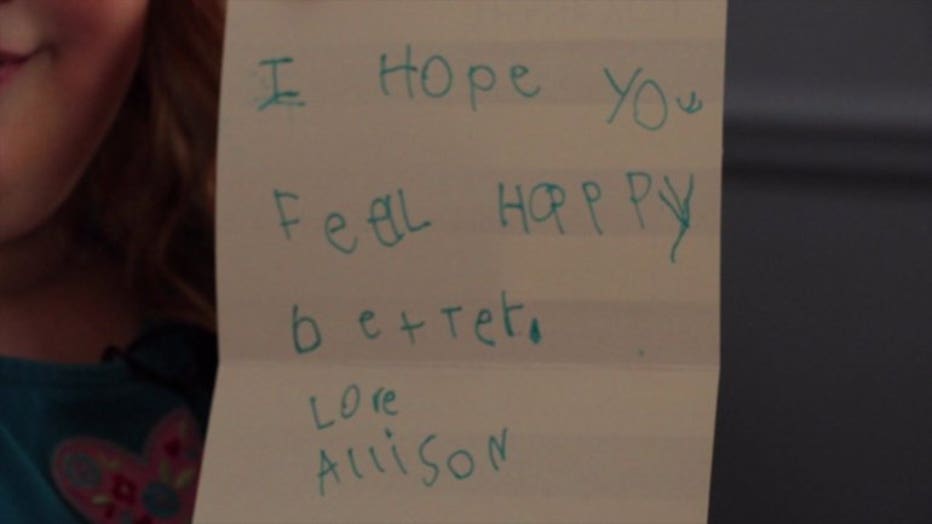 I HOpe YOu
Feel HAPPPy
betTer.
LOve
AlliSON